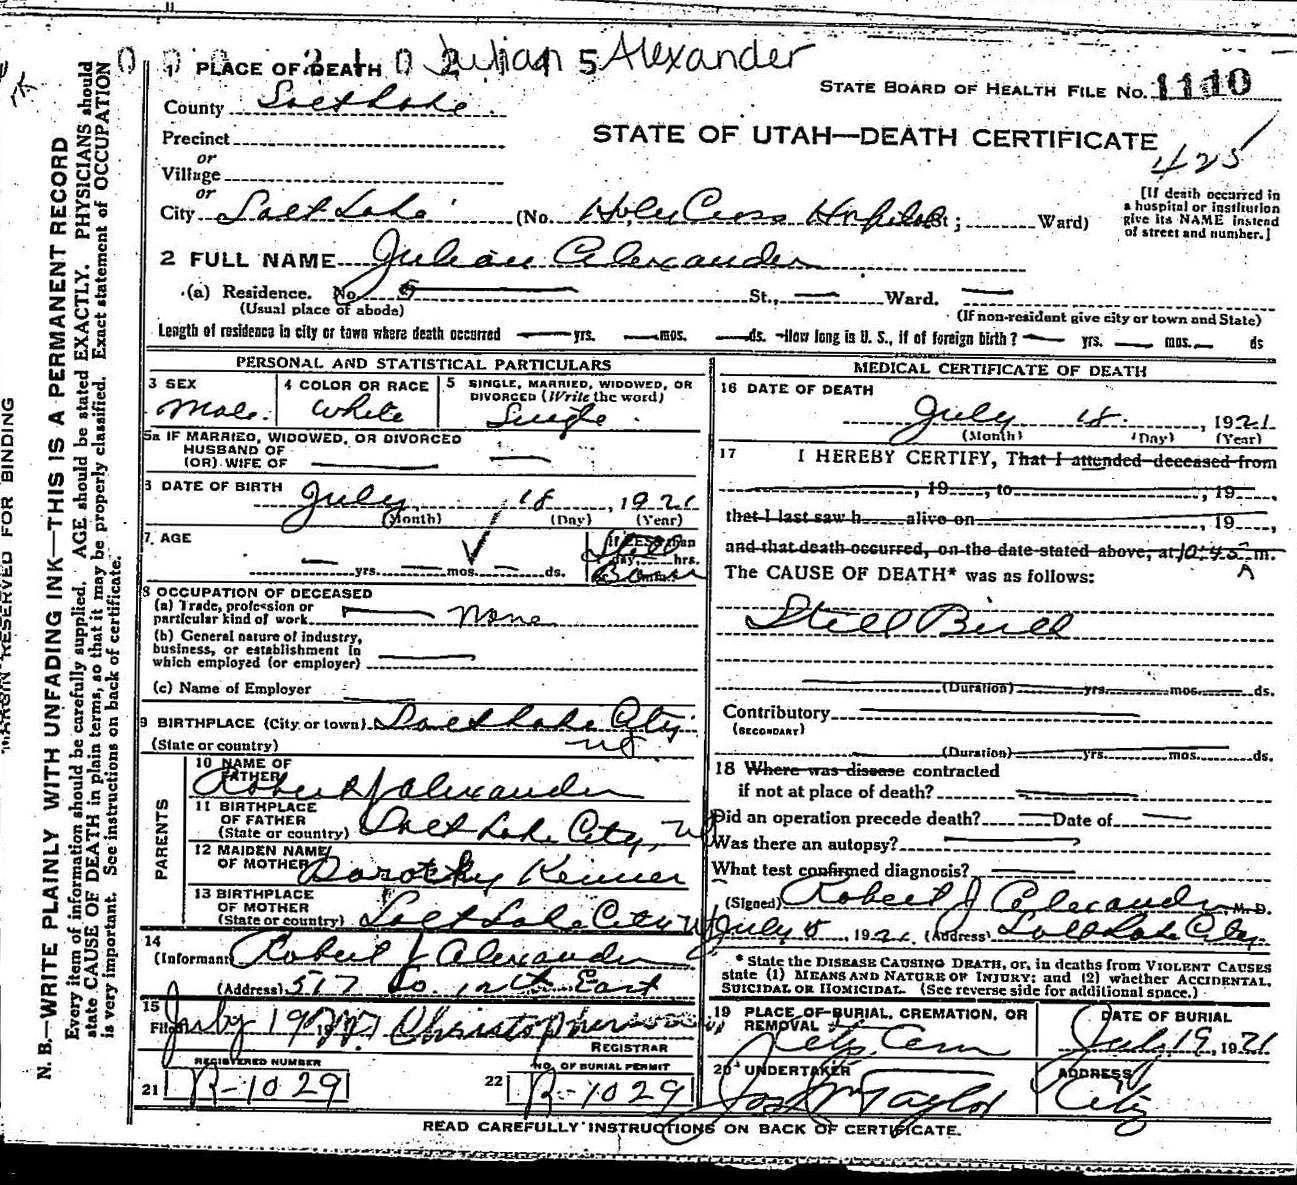 Julian Alexander
1 PLACE OF DEATH
STATE BOARD OF HEALTH FILE No. 1110
County Salt Lake
STATE OF UTAH—DEATH CERTIFICATE
425
Precinct
or
Village
or
City Salt Lake (No. Holy Cross Hospital St; Ward)
[If death occurred in
a hospital or institution
give its NAME instead
of street and number.]
2 FULL NAME Julian Alexander
(a) Residence. No. St., Ward.
(Usual place of abode) (If non-resident give city or town and State)
Length of residence in city or town where death occurred yrs. mos. ds. How long in U. S., if of foreign birth? yrs. mos. ds
PERSONAL AND STATISTICAL PARTICULARS
3 SEX
Male.
4 COLOR OR RACE
White
5 SINGLE, MARRIED, WIDOWED, OR
DIVORCED (Write the word)
Single
5a IF MARRIED, WIDOWED, OR DIVORCED
HUSBAND OF
(OR) WIFE OF
6 DATE OF BIRTH
July 18, 1921
(Month) (Day) (Year)
7 AGE
yrs. mos. ds.
If LESS than
day, hrs.
Still
Born
8 OCCUPATION OF DECEASED
(a) Trade, profession or
particular kind of work none
(b) General nature of industry,
business, or establishment in
which employed (or employer)
(c) Name of Employer
9 BIRTHPLACE (City or town) Salt Lake City
(State or country)
PARENTS
10 NAME OF
FATHER
Robert J Alexander
11 BIRTHPLACE
OF FATHER
(State or country) Salt Lake City,
12 MAIDEN NAME
OF MOTHER Dorothy Kenner
13 BIRTHPLACE
OF MOTHER
(State or country) Salt Lake City
14
(Informant Robert J Alexander
(Address) 517 So. 12th East
15
Filed July 19 Christopherson
REGISTRAR
REGISTERED NUMBER
21 R-1029
NO. OF BURIAL PERMIT
22 R-1029
MEDICAL CERTIFICATE OF DEATH
16 DATE OF DEATH
July 18, 1921
(Month) (Day) (Year)
17 I HEREBY CERTIFY, That I attended deceased from
, 19 , to , 19 ,
that I last saw h alive on , 19 ,
and that death occurred, on the date stated above, at 10:45 A m.
The CAUSE OF DEATH* was as follows:
Still Birth
(Duration) yrs. mos. ds.
Contributory
(SECONDARY)
(Duration) yrs. mos. ds.
18 Where was disease contracted
if not at place of death?
Did an operation precede death? Date of
Was there an autopsy?
What test confirmed diagnosis?
(Signed) Robert J Alexander, M. D.
July 18, 1921 (Address) Salt Lake City
* State the DISEASE CAUSING DEATH, or, in deaths from VIOLENT CAUSES
state (1) MEANS AND NATURE OF INJURY; and (2) whether ACCIDENTAL,
SUICIDAL OR HOMICIDAL. (See reverse side for additional space.)
19 PLACE OF BURIAL, CREMATION, OR
REMOVAL
City Cem
DATE OF BURIAL
July 19, 1921
20 UNDERTAKER
Jos Wm Taylor
ADDRESS
City
READ CAREFULLY INSTRUCTIONS ON BACK OF CERTIFICATE.
MARGIN RESERVED FOR BINDING
N. B.—WRITE PLAINLY WITH UNFADING INK—THIS IS A PERMANENT RECORD
Every item of information should be carefully supplied. AGE should be stated EXACTLY. PHYSICIANS should
state CAUSE OF DEATH in plain terms, so that it may be properly classified. Exact statement of OCCUPATION
is very important. See instructions on back of certificate.